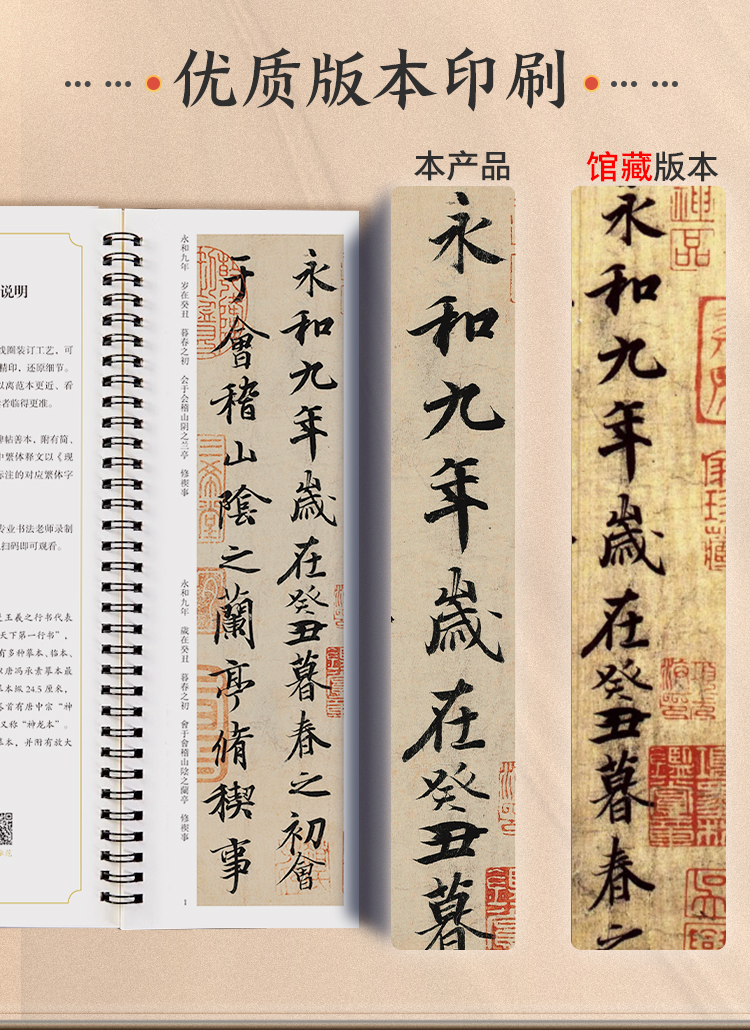 优质版本印刷
本产品
馆藏版本
说明
线圈装订工艺，可
精印，还原细节。
以离范本更近、看
者临得更准。
碑帖善本，附有简、
中繁体释文以《现
标注的对应繁体字
专业书法老师录制
扫码即可观看。
是王羲之行书代表
天下第一行书”，
有多种摹本、临本、
以唐冯承素摹本最
本纵 24.5 厘米，
卷首有唐中宗“神
又称“神龙本”。
摹本，并附有放大
永和九年 岁在癸丑 暮春之初 会于会稽山阴之兰亭 修禊事
永和九年 歲在癸丑 暮春之初 會于會稽山陰之蘭亭 修禊事
1
永和九年歲在癸丑暮春之初會
于會稽山陰之蘭亭脩稧事
永和九年歲在癸丑暮
永和九年歲在癸丑暮春之